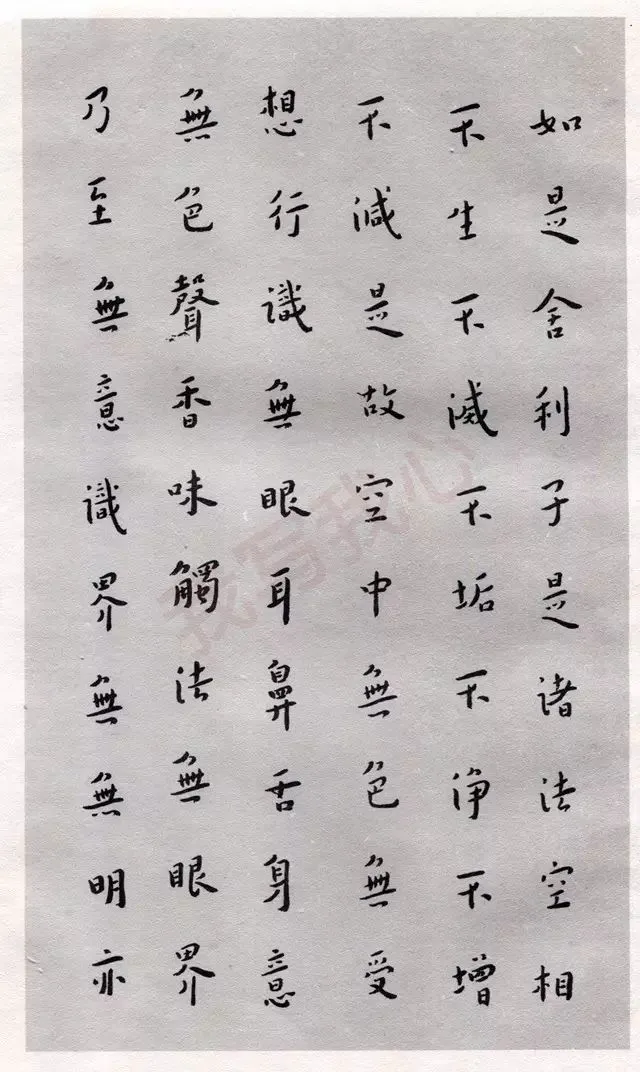 如是舍利子是诸法空相
不生不滅不垢不净不增
不減是故空中無色無受
想行識無眼耳鼻舌身意
無色聲香味觸法無眼界
乃至無意識界無無明亦
我写我心